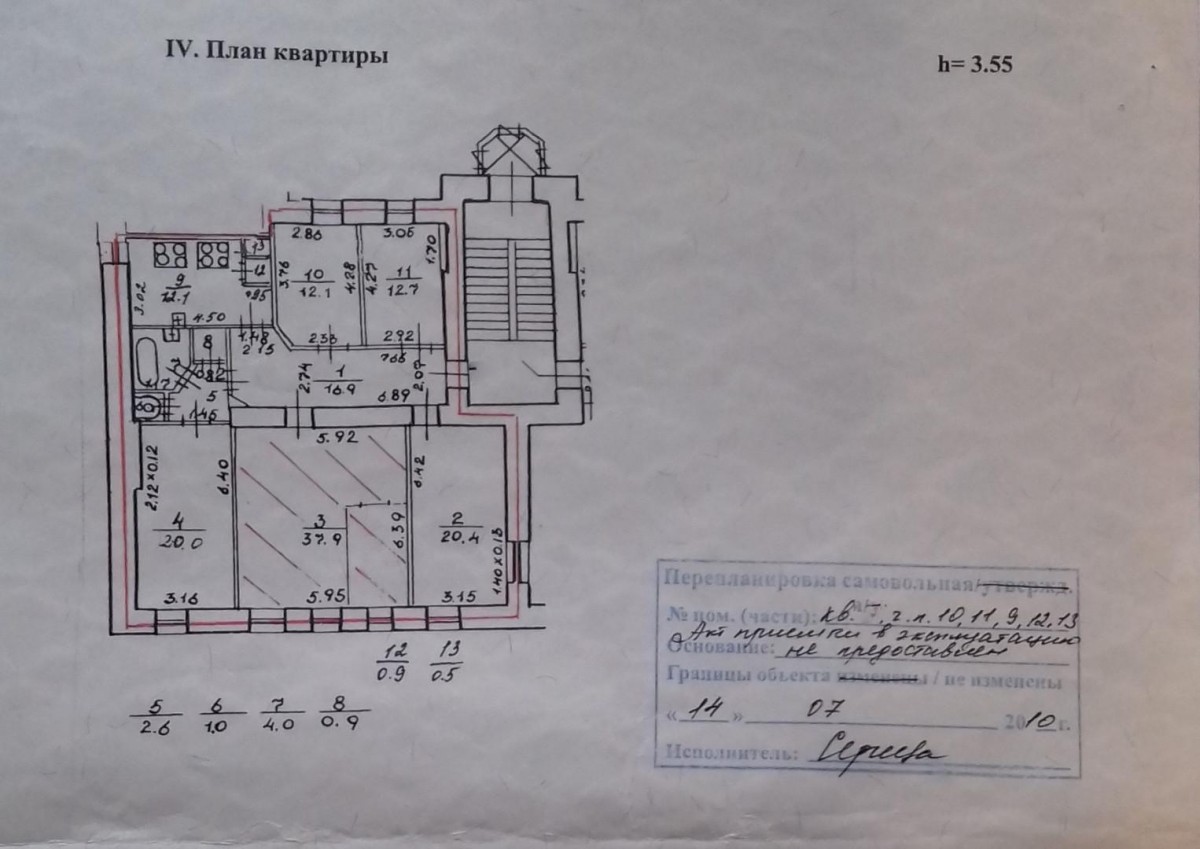 IV. План квартиры
h= 3.55
2.86
3.06
1.70
3.76
10
12.1
4.28
4.27
11
12.7
13
12
9
12.1
3.02
4.50
2.38
2.92
8
2.15
7
5
1.46
2.74
1
16.9
2.09
6.89
5.92
2.12x0.12
6.40
6.42
4
20.0
3
37.9
6.39
2
20.4
1.40x0.13
3.16
5.95
3.15
12
0.9
13
0.5
5
2.6
6
1.0
7
4.0
8
0.9
Перепланировка самовольная/утвержд.
№ пом. (части): кв. ч.п. 10, 11, 9, 12, 13
Акт приемки в эксплуатацию
Основание: не предоставлен
Границы объекта изменены / не изменены
« 14 » 07 2010 г.
Исполнитель: